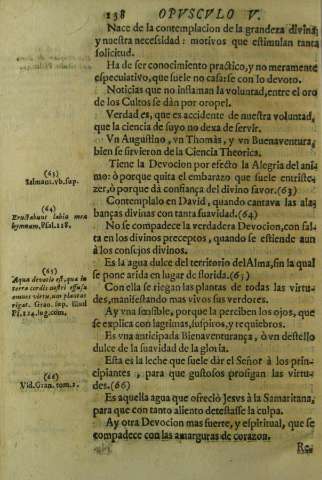 138 OPVSCVLO V.
Nace de la contemplacion de la grandeza divina,
y nuestra necessidad: motivos que estimulan tanta
solicitud.
Ha de ser conocimiento practico, y no meramente
especulativo, que suele no casarse con lo devoto.
Noticias que no inflaman la voluntad, entre el oro
de los Cultos se dàn por oropel.
Verdad es, que es accidente de nuestra voluntad,
que la ciencia de suyo no dexa de servir.
Vn Augustino, vn Thomàs, y vn Buenaventura,
bien se sirvieron de la Ciencia Theorica.
Tiene la Devocion por efecto la Alegria del ani-
mo: ò porque quita el embarazo que suele entriste-
zer, ò porque dà confiança del divino favor.(63)
Contemplalo en David, quando cantava las ala-
banças divinas con tanta suavidad.(64)
No se compadece la verdadera Devocion, con fal-
ta en los divinos preceptos, quando se estiende aun
à los consejos divinos.
Es la agua dulce del territorio del Alma, sin la qual
se pone arida en lugar de florida.(65)
Con ella se riegan las plantas de todas las virtu-
des, manifestando mas vivos sus verdores.
Ay vna sensible, porque la perciben los ojos, que
se explica con lagrimas, suspiros, y requiebros.
Es vna anticipada Bienaventurança, ò vn destello
dulce de la suavidad de la gloria.
Esta es la leche que suele dàr el Señor à los prin-
cipiantes, para que gustosos prosigan las virtu-
des.(66)
Es aquella agua que ofreciò Jesvs à la Samaritana,
para que con tanto aliento detestasse la culpa.
Ay otra Devocion mas fuerte, y espiritual, que se
compadece con las amarguras de corazon.
Re-
(63)
Salmant. vb. sup.
(64)
Eructabunt labia mea
hymnum, Psal. 118.
(65)
Aqua devotio est, qua in
terra cordis nostri effusa
omnes virtutum plantas
rigat. Gran. sup. illud
Ps. 114. lug. com.
(66)
Vid. Gran. tom. 1.